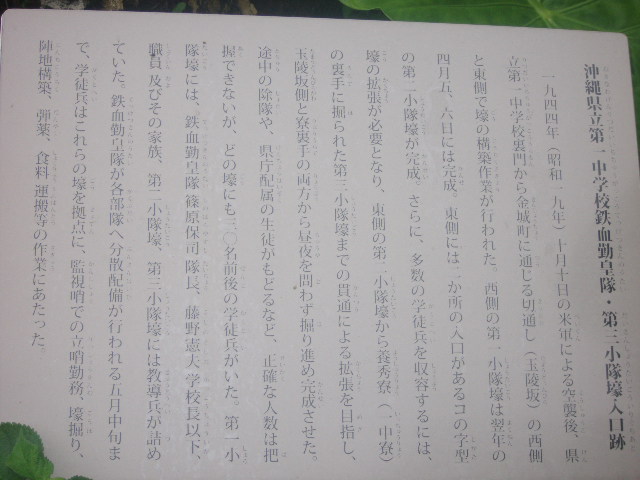 沖縄県立第一中学校鉄血勤皇隊・第三小隊壕入口跡
一九四四年（昭和一九年）十月十日の米軍による空襲後、県
立第一中学校裏門から金城町に通じる切通し（玉陵坂）の西側
と東側で壕の構築作業が行われた。西側の第一小隊壕は翌年の
四月五、六日には完成。東側には二か所の入口があるコの字型
の第二小隊壕が完成。さらに、多数の学徒兵を収容するには、
壕の拡張が必要となり、東側の第二小隊壕から養秀寮（一中寮）
の裏手に掘られた第三小隊壕までの貫通による拡張を目指し、
玉陵坂側と寮裏手の両方から昼夜を問わず掘り進め完成させた。
途中の除隊や、県庁配属の生徒がもどるなど、正確な人数は把
握できないが、どの壕にも三〇名前後の学徒兵がいた。第一小
隊壕には、鉄血勤皇隊 篠原保司 隊長、藤野憲夫 学校長以下、
職員 及びその家族、第二小隊壕、第三小隊壕には教導兵が詰め
ていた。鉄血勤皇隊が各部隊へ分散配備が行われる五月中旬ま
で、学徒兵はこれらの壕を拠点に、監視哨での立哨勤務、壕掘り、
陣地構築、弾薬、食料 運搬等の作業にあたった。